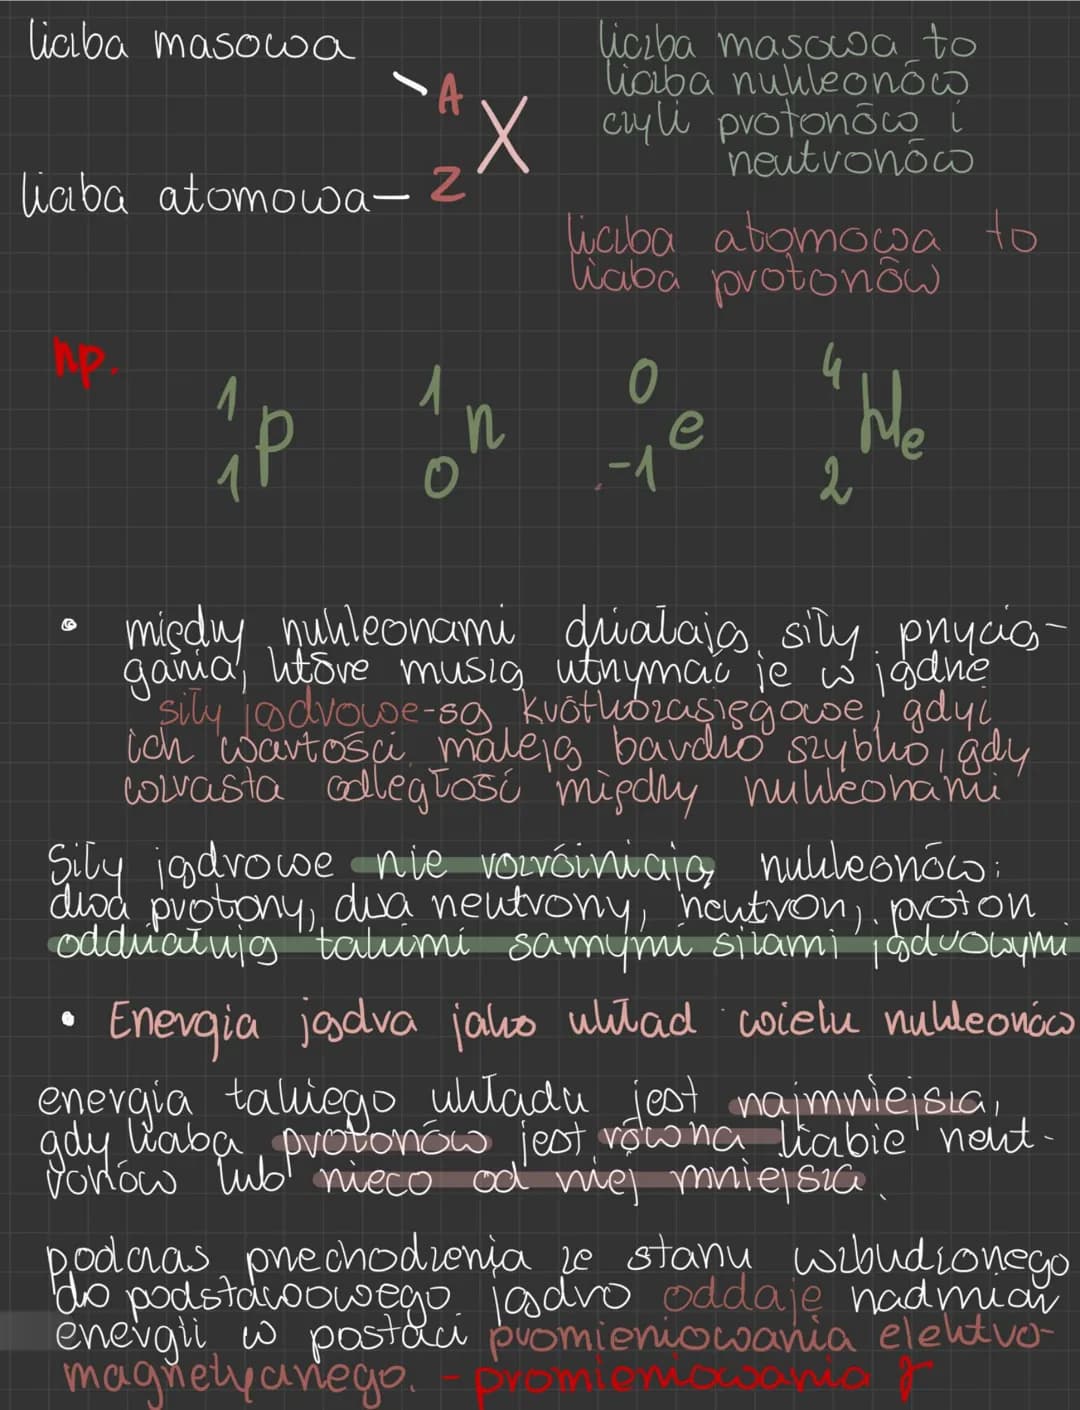 liczba masowa
A
X
Z
liczba atomowa-
liczba masowa to
liczba nukleonów
czyli protonów i
neutronów
liczba atomowa to
liczba protonów
np.
1 1 p
1 0 n
0 -1 e
4 2 He
• między nukleonami działają siły przycią-
gania, które muszą utrzymać je w jądrze
siły jądrowe-są krótkozasięgowe, gdyż
ich wartości maleją bardzo szybko, gdy
wzrasta odległość między nukleonami
Siły jądrowe nie rozróżniają nukleonów:
dwa protony, dwa neutrony, neutron, proton
oddziałują takimi samymi siłami jądrowymi
• Energia jądra jako układ wielu nukleonów
energia takiego układu jest najmniejsza,
gdy liczba protonów jest równa liczbie neut-
ronów lub nieco od niej mniejsza.
podczas przechodzenia ze stanu wzbudzonego
do podstawowego jądro oddaje nadmiar
energii w postaci promieniowania elektro-
magnetycznego. - promieniowania γ